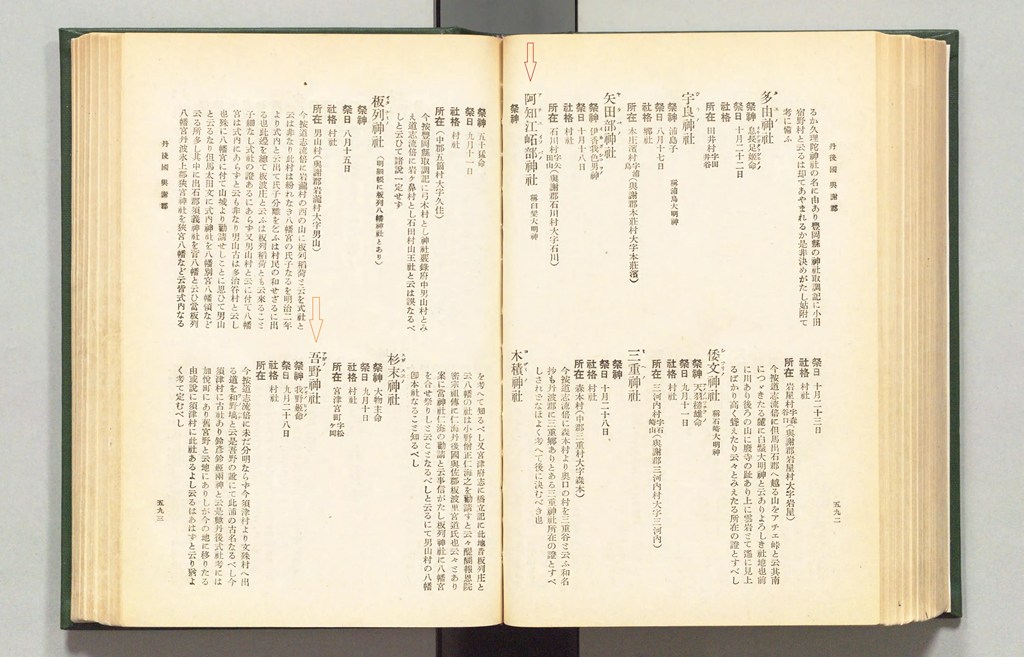 丹後國 與謝郡
るか久理陀神社の名に由あり豐岡縣の神社取調記に小田
宿野村と云るは却てあやまれるか是非決めがたし姑附て
考に備ふ
多由神社
祭神 息長足姬命
祭日 十月二十二日
社格 村社
所在 田井村字国井谷
宇良神社 稱浦島大明神
祭神 浦島子
祭日 八月十七日
社格 鄕社
所在 本庄濱村字浦島 (與謝郡本莊村大字本莊濱)
矢田部神社
祭神 伊香我色男神
祭日 十月十八日
社格 村社
所在 石川村字矢田山 (與謝郡石川村大字石川)
阿知江峅部神社 稱白鬚大明神
祭神
祭日 十月二十三日
社格 村社
所在 岩屋村字森谷口 (與謝郡岩屋村大字岩屋)
今按道志流倍に但馬出石郡へ越る山をアチエ峠と云其南
につゞきたる麓に白鬚大明神と云ありよろしき社地也前
に川あり後ろの山に廢寺の趾あり上に雲岩とて遙に見上
るばかり高く聳えたり云々とみえたる所在の證とすべし
倭文神社 稱石崎大明神
祭神 天羽槌雄命
祭日 九月十一日
社格 村社
所在 三河內村字石崎山 (與謝郡三河內村大字三河內)
三重神社
祭神
祭日 十月二十八日
社格 村社
所在 森本村 (中郡三重村大字森本)
今按道志流倍に森本村より奧口の村を三重谷と云ふ和名
抄も丹波郡に三重鄕ありとある三重神社所在の證とすべ
しされどなほよく考へて後に決むべき也
木積神社
五九二
祭神 五十猛命
祭日 九月十一日
社格 村社
所在 (中郡五箇村大字久住)
今按豐岡縣取調記に弓木村とし神社覈錄府中男山村とみ
え道志流倍に岩ケ鼻村とし石田村山王社と云は誤なるべ
しと云ひて諸說一定せす
板列神社 (明細帳に板列八幡神社とあり)
祭日 八月十五日
社格 村社
所在 男山村 (與謝郡岩瀧村大字男山)
今按道志流倍に岩瀧村の西の山に板列稻荷と云を式社と
云は非なり此村は紛れなき八幡宮の氏子なるを明治二年
より式內と云出て氏子分離を乞ふは村民の和せざるに出
る也此邊を總て板波庄と云ふは板列稻荷とも云來ること
子細なし式社の證あるにあらす又男山村と云に付て八幡
宮は式內にあらすと云も非なり男山古は多治谷村と云し
也殊に八幡宮に付て山城より勸請せしことに思ひて男山
と云るなり但馬太田文に式內神社を八幡別宮八幡領など
云る所多し其中に出石郡須義神社を菅八幡と云ひ當板列
八幡宮丹波氷上郡狹宮神社を狹宮八幡など云皆式內なる
を考へて知るべし又宮津府志に橋立記に此地昔板列庄と
云八幡の社は小野僧正仁海之を勸請すと云々醍醐報恩院
密宗祖傳に仁海丹後國與佐郡板波里宮道氏也云々とあり
案に當神社仁海の勸請と云事信がたし板列神社に八幡宮
を合せ祭りしと云ことなるべしと云るにて男山村の八幡
卽本社なること知るべし
杉末神社
祭神 大物主命
祭日 九月十日
社格 村社
所在 宮津宮町字松ケ岡
吾野神社
祭神 我野姬命
祭日 九月二十八日
社格 村社
所在
今按道志流倍に未だ分明ならす今須津村より文殊村へ出
る道を和野塙と云是吾野の訛にて此浦の古名なるべし今
須津村に古社あり鈴彥鈴姬兩神と云是歟丹後式社考には
加悅町にあり舊宮野と云地にありしが今の地に移りたる
由或說に須津村に此社あるよし云るはあはすと云り猶よ
く考て定むべし
丹後國 與謝郡
五九三